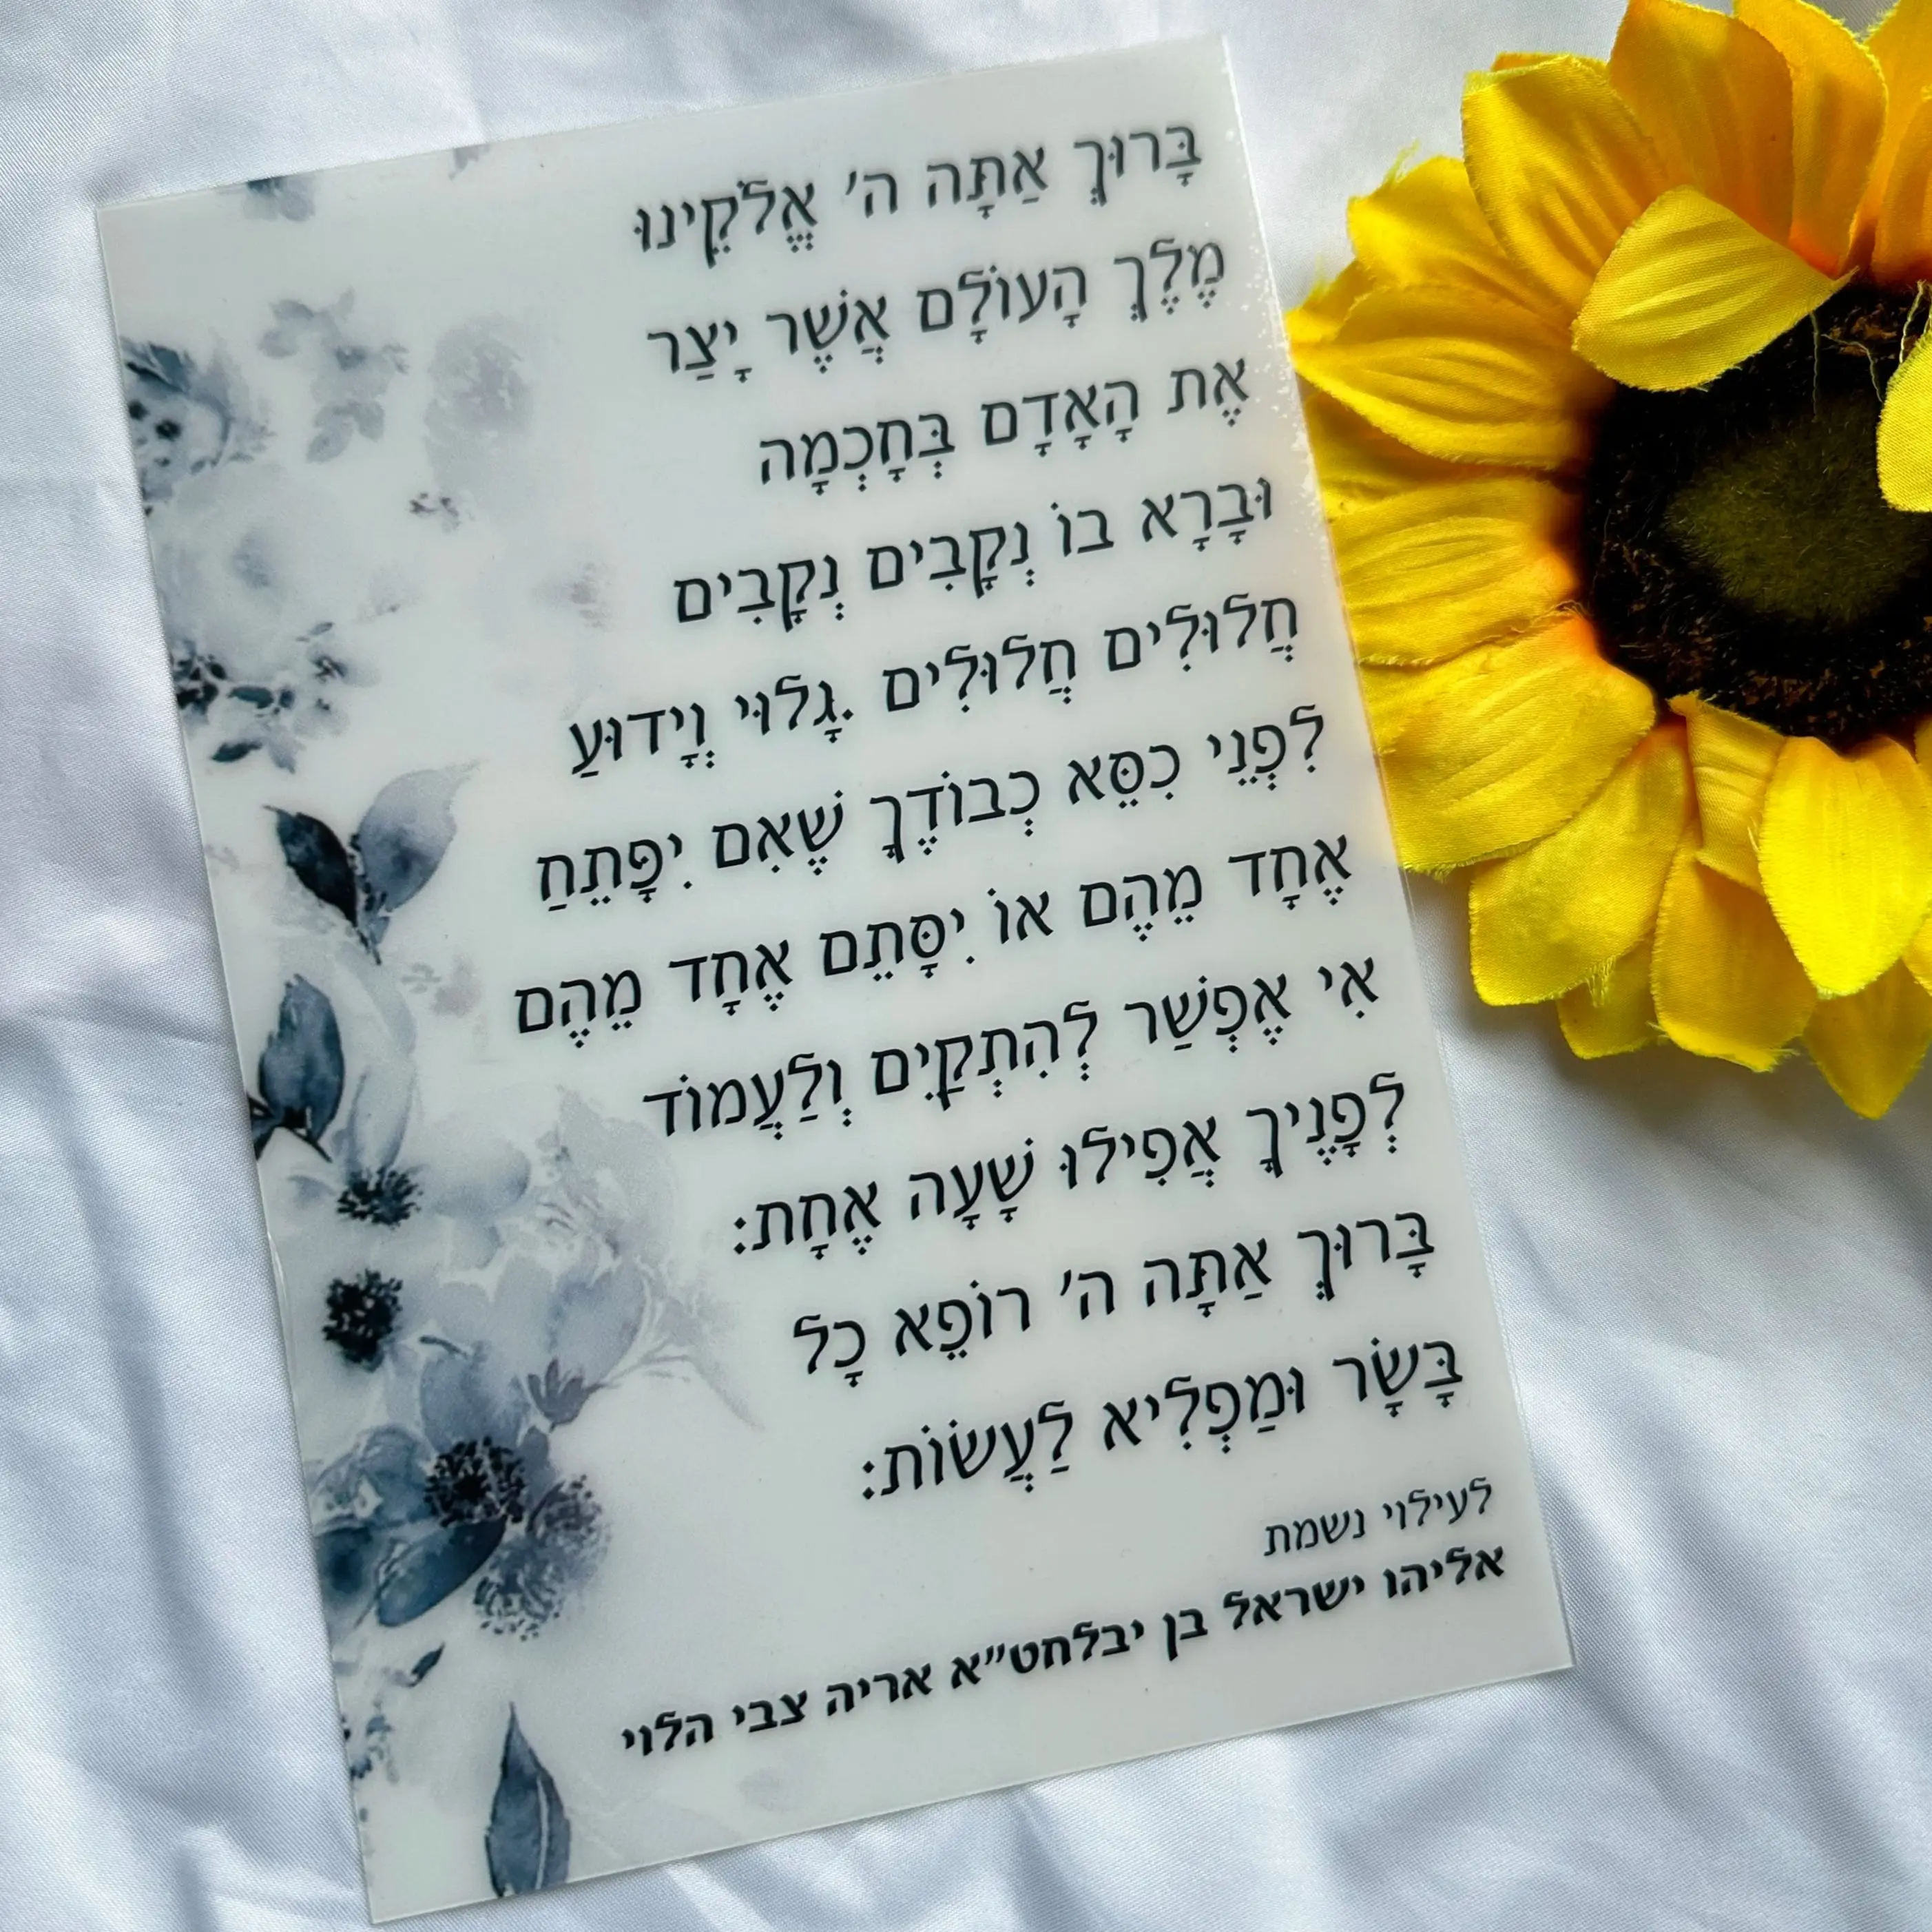 בָּרוּךְ אַתָּה ה' אֱלֹקֵינוּ
מֶלֶךְ הָעוֹלָם אֲשֶׁר יָצַר
אֶת הָאָדָם בְּחָכְמָה
וּבָרָא בוֹ נְקָבִים נְקָבִים
חֲלוּלִים חֲלוּלִים .גָּלוּי וְיָדוּעַ
לִפְנֵי כִסֵּא כְבוֹדֶךָ שֶׁאִם יִפָּתֵחַ
אֶחָד מֵהֶם אוֹ יִסָּתֵם אֶחָד מֵהֶם
אִי אֶפְשַׁר לְהִתְקַיִּם וְלַעֲמוֹד
לְפָנֶיךָ אֲפִילוּ שָׁעָה אֶחָת:
בָּרוּךְ אַתָּה ה' רוֹפֵא כָל
בָּשָׂר וּמַפְלִיא לַעֲשׂוֹת:
לעילוי נשמת
אליהו ישראל בן יבלחט"א אריה צבי הלוי